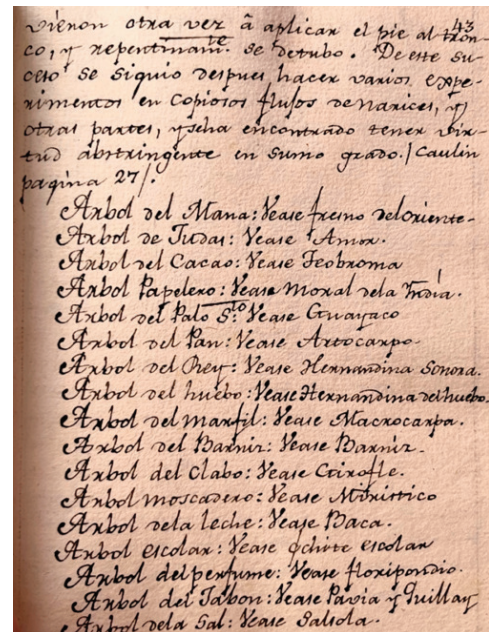 43
vieron otra vez â aplicar el pie al tron-
co, y repentinamte. se detubo. De este su-
ceso se siguio despues, hacer varios expe-
rimentos en Copiosos flujos de narices, y
otras partes, yseha encontrado tener vir-
tud abstringente en sumo grado./Caulin
pagina 27/.
Arbol del Mana: Vease fresno del oriente.
Arbol de Judas: Vease Amor.
Arbol del Cacao: Vease Teobroma
Arbol Papelero: Vease Moral dela India.
Arbol del Palo Sto: Vease Guayaco
Arbol del Pan: Vease Artocarpo.
Arbol del Rey: Vease Hernandina Sonora.
Arbol del huebo: Vease Hernandina del huebo.
Arbol del marfil: Vease Macrocarpa.
Arbol del Barniz: Vease Barniz.
Arbol del Clabo: Vease Girofle.
Arbol moscadero: Vease Miristico
Arbol dela leche: Vease Baca.
Arbol escolar: Vease ochite escolar
Arbol del perfume: Vease floripondio.
Arbol del Jabon: Vease Pavia y Quillay
Arbol dela Sal: Vease Salsola.